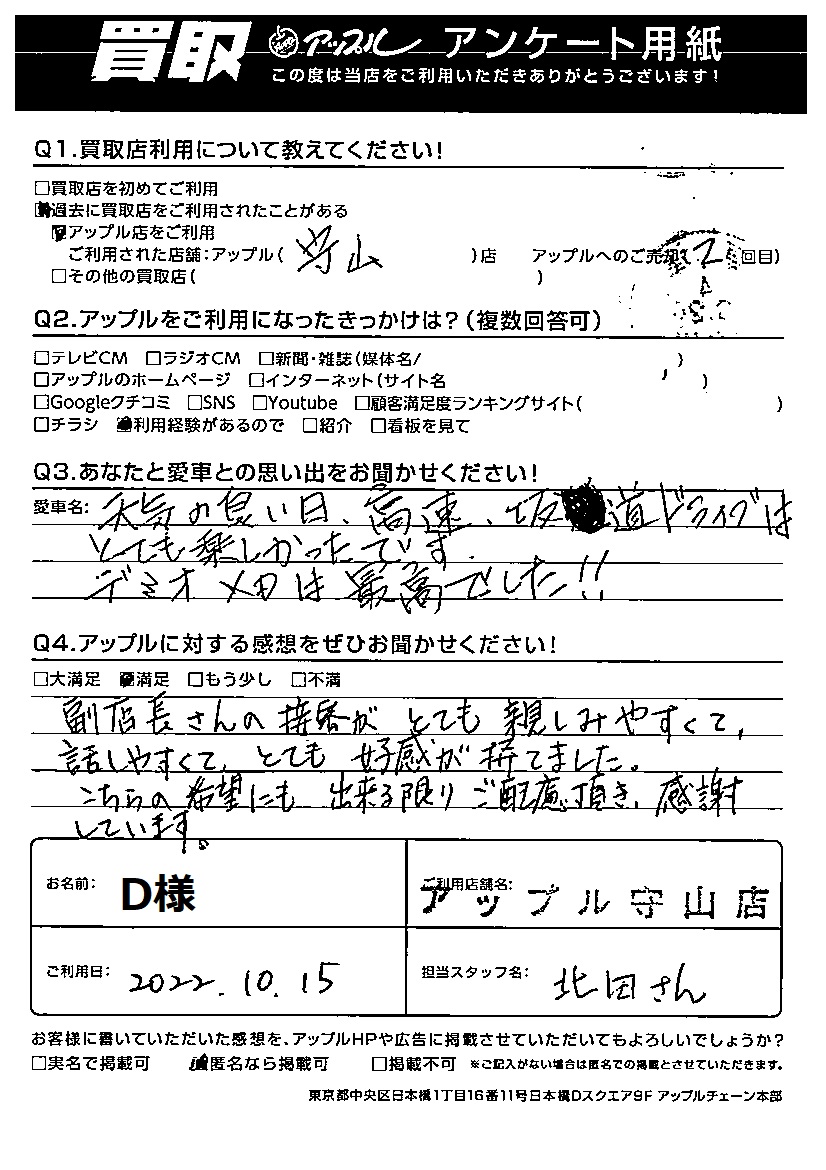 買取 アップル アンケート用紙
この度は当店をご利用いただきありがとうございます!
Q1.買取店利用について教えてください!
□買取店を初めてご利用
■過去に買取店をご利用されたことがある
☑アップル店をご利用
ご利用された店舗:アップル( 守山 )店 アップルへのご売却( 2 回目)
□その他の買取店( )
Q2.アップルをご利用になったきっかけは?(複数回答可)
□テレビCM □ラジオCM □新聞・雑誌(媒体名/ )
□アップルのホームページ □インターネット(サイト名 )
□Googleクチコミ □SNS □Youtube □顧客満足度ランキングサイト( )
□チラシ ■利用経験があるので □紹介 □看板を見て
Q3.あなたと愛車との思い出をお聞かせください!
愛車名: 天気の良い日、高速、坂道ドライブは
とても楽しかったです.
デミオ メロは最高でした!!
Q4.アップルに対する感想をぜひお聞かせください!
□大満足 ☑満足 □もう少し □不満
副店長さんの接客がとても親しみやすくて,
話しやすくて、とても好感が持てました。
こちらの希望にも出来る限りご配慮頂き、感謝
しています。
お名前: D様
ご利用店舗名: アップル守山店
ご利用日: 2022.10.15
担当スタッフ名: 北田さん
お客様に書いていただいた感想を、アップルHPや広告に掲載させていただいてもよろしいでしょうか?
□実名で掲載可 ■匿名なら掲載可 □掲載不可 ※ご記入がない場合は匿名での掲載とさせていただきます。
東京都中央区日本橋1丁目16番11号日本橋Dスクエア9F アップルチェーン本部